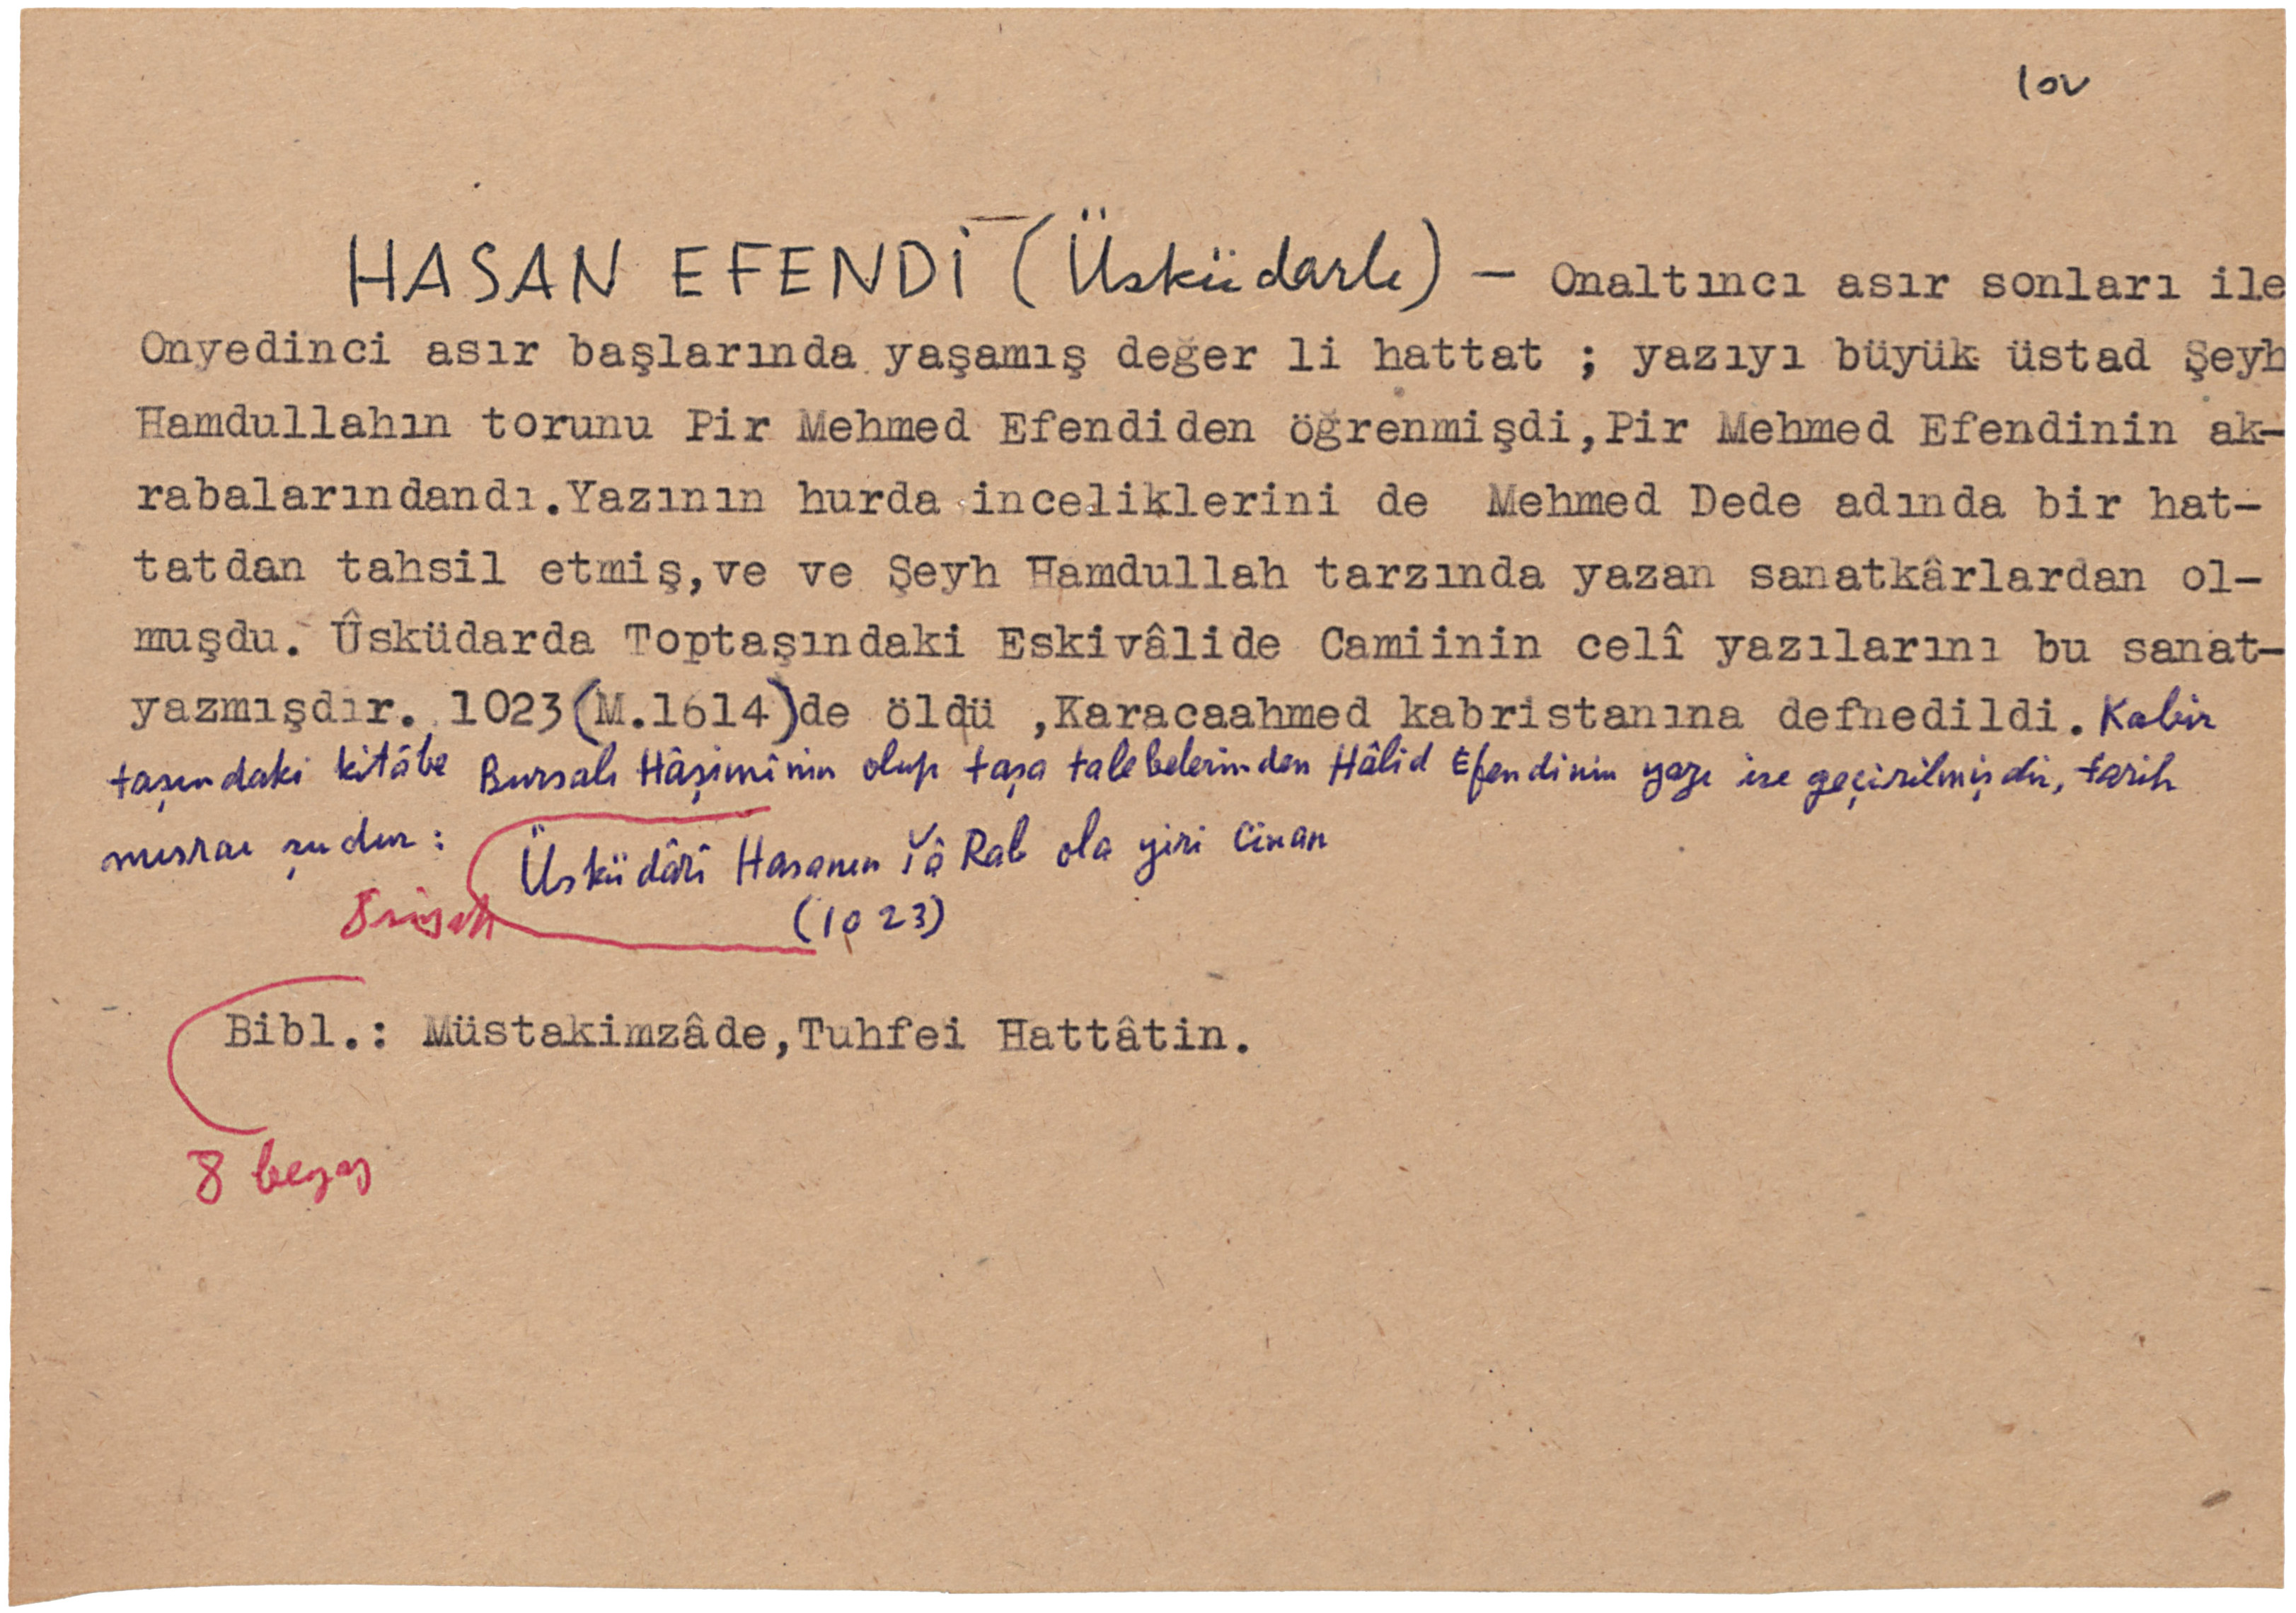 lov
HASAN EFENDİ (Üsküdarlı) — Onaltıncı asır sonları ile
Onyedinci asır başlarında yaşamış değer li hattat ; yazıyı büyük üstad Şeyh
Hamdullahın torunu Pir Mehmed Efendiden öğrenmişdi,Pir Mehmed Efendinin ak-
rabalarındandı.Yazının hurda inceliklerini de Mehmed Dede adında bir hat-
tatdan tahsil etmiş,ve ve Şeyh Hamdullah tarzında yazan sanatkârlardan ol-
muşdu. Ûsküdarda Toptaşındaki Eskivâlide Camiinin celî yazılarını bu sanat-
yazmışdır. 1023(M.1614)de öldü ,Karacaahmed kabristanına defnedildi. Kabir
taşındaki kitâbe Bursalı Hâşimînin olup taşa talebelerinden Hâlid Efendinin yazı ise geçirilmişdir, tarih
mısraı şudur :
Üsküdârî Hasanın Yâ Rab ola yiri Cinan
(1023)
8 siyah
Bibl.: Müstakimzâde,Tuhfei Hattâtin.
8 beyaz